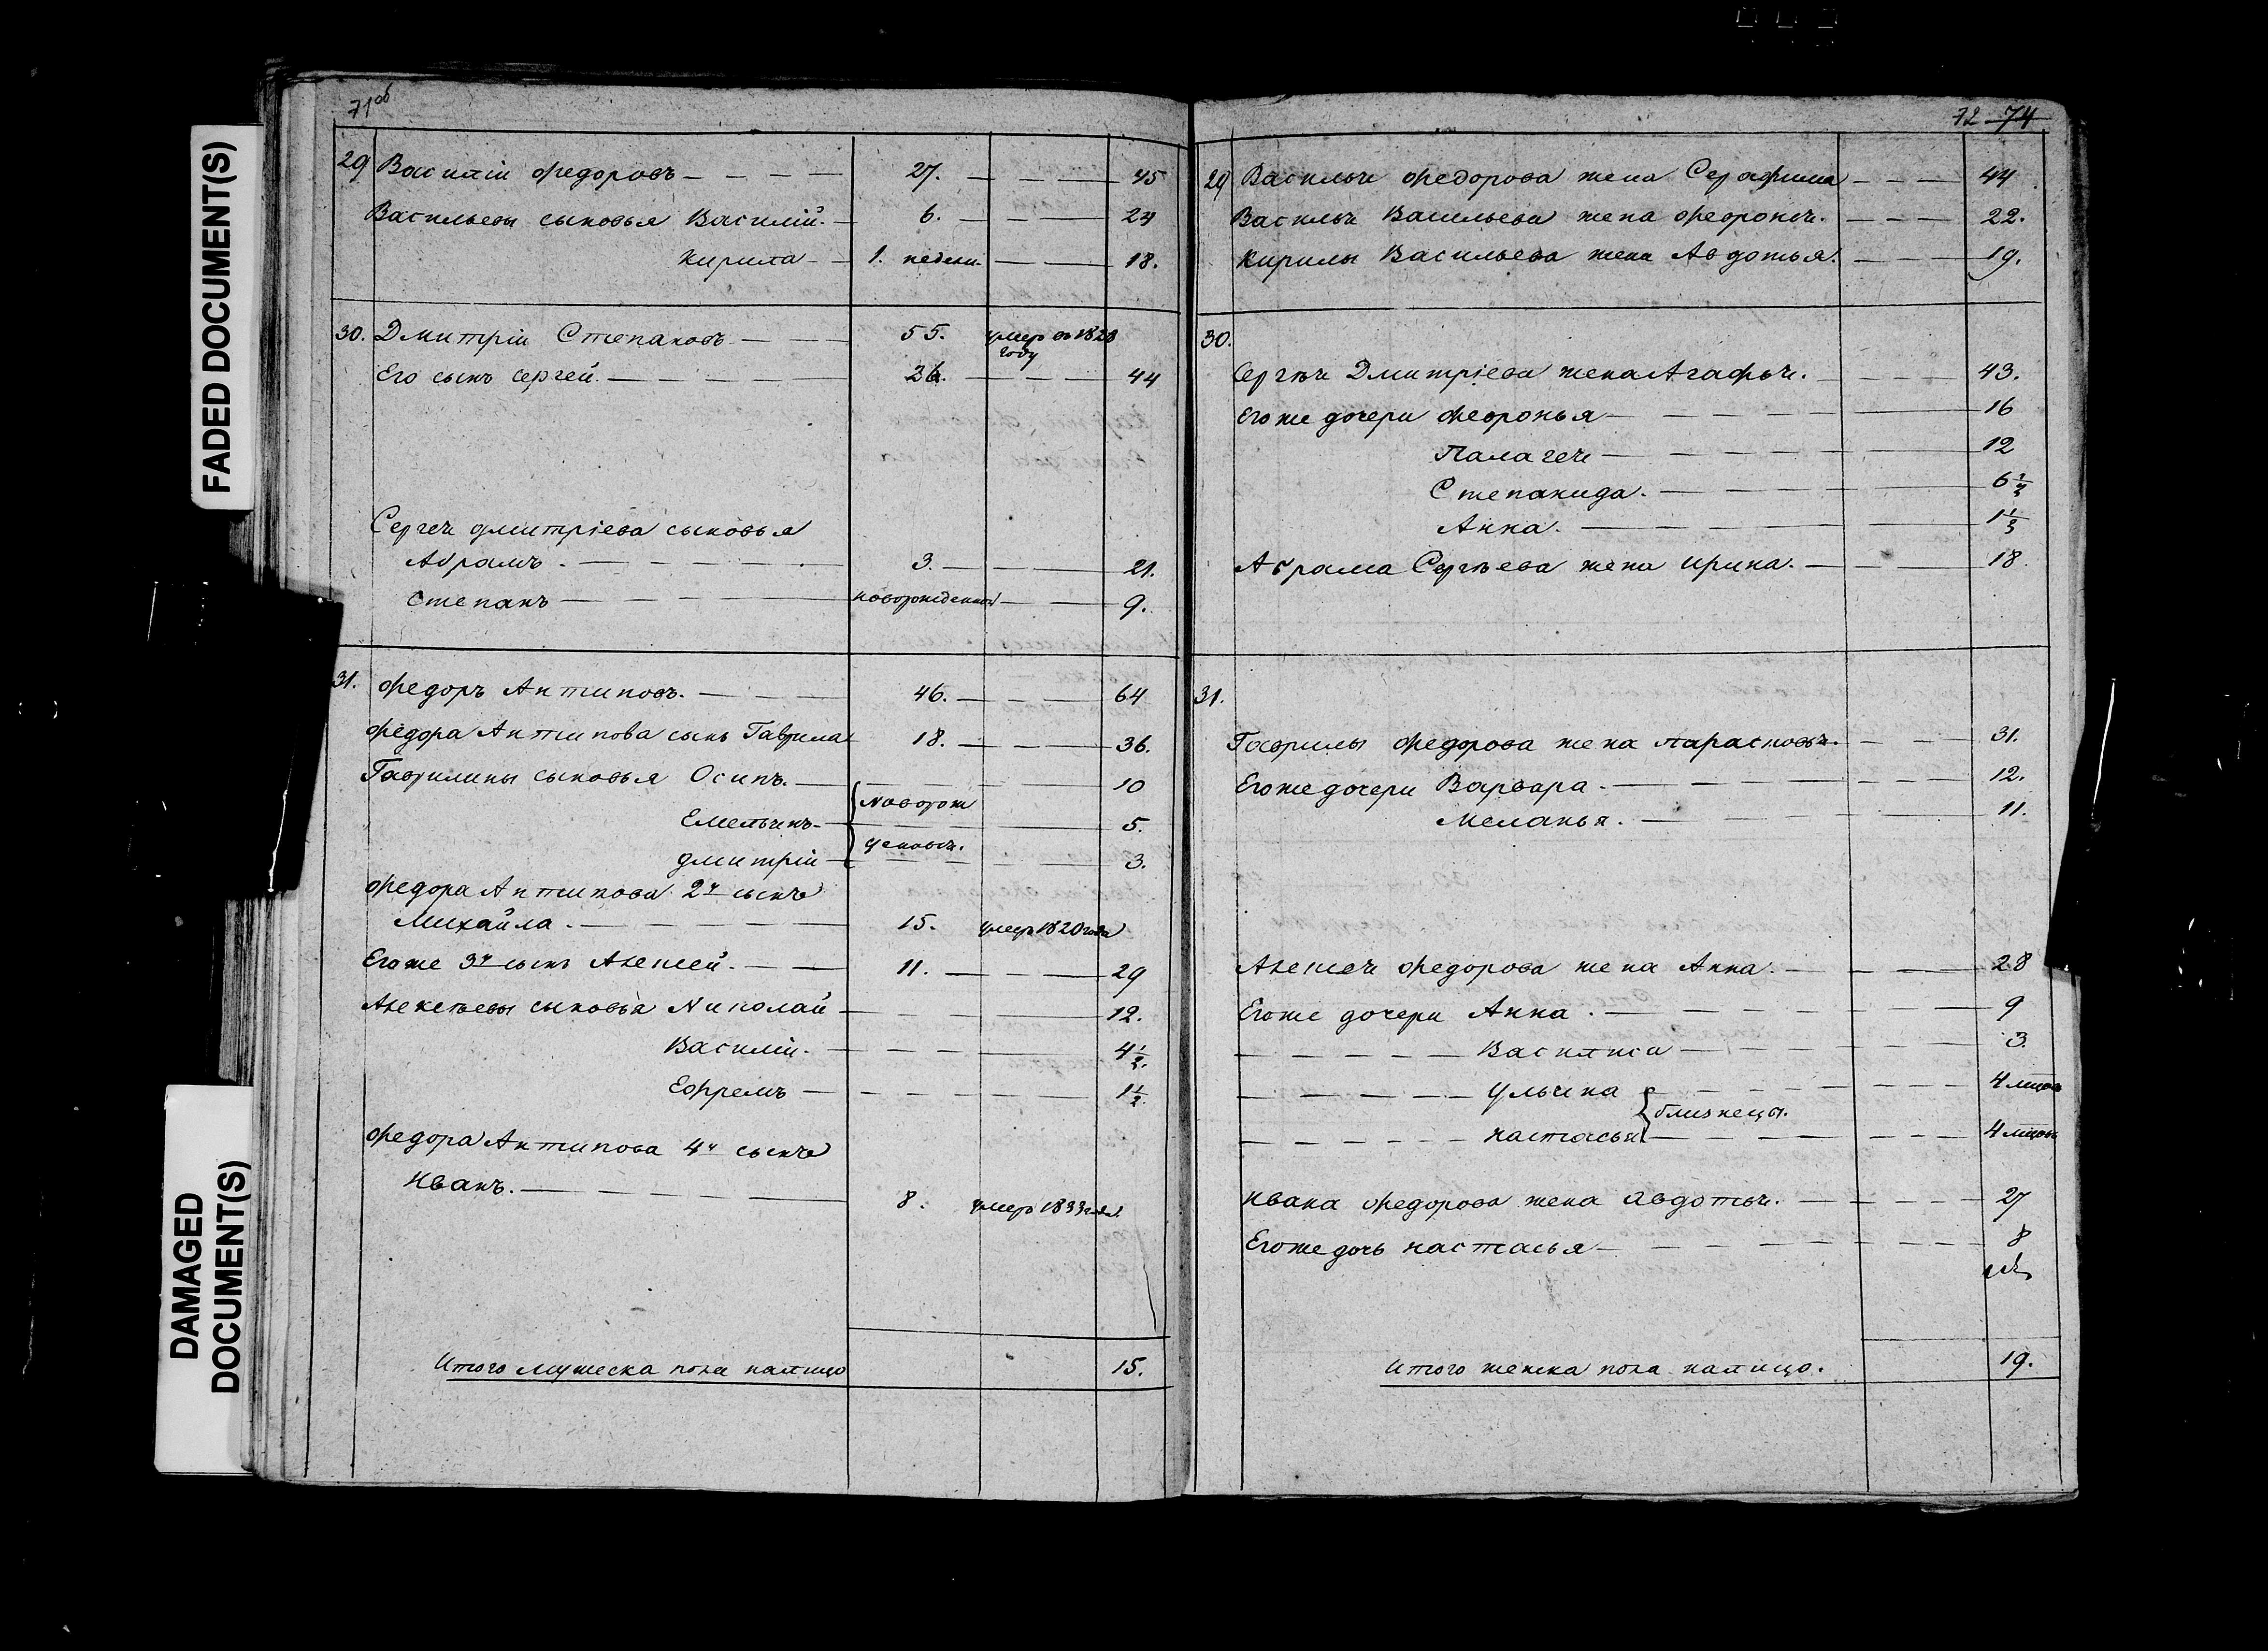 FADED DOCUMENT(S)
DAMAGED
DOCUMENT(S)
71об
29 Василіи Федоровъ 27. 45
Васильевы сыновья Василій. 6. 24
Кирила 1. недели. 18.
30. Дмитріи Степановъ 55. умеръ въ 1828 году
Его сынъ Сергей. 26. 44
Сергея Дмитріева сыновья
Абрамъ. 3. 21.
Степанъ новорожденной 9.
31. Федоръ Антиповъ. 46. 64
Федора Антипова сынъ Гаврила 18. 36.
Гаврилины сыновья Осипъ. 10
Новорож
Емельянъ 5.
денныя.
Дмитріи 3.
Федора Антипова 2й сынъ
Михайла. 15. умеръ 1820 года
Его же 3й сынъ Алексей. 11. 29
Алексѣевы сыновья Николай 12.
Василіи. 4 1/2.
Ефремъ 1 1/2.
Федора Антипова 4й сынъ
Иванъ. 8. умеръ 1833 года.
Итого мужеска пола налицо 15.
72 74
29 Василья Федорова жена Серафима 44
Василья Васильева жена Федронья. 22.
Кирилы Васильева жена Авдотья. 19.
30.
Сергѣя Дмитріева жена Агафья. 43.
Его же дочери Федронья 16
Палагея 12
Степанида. 6
Анна. 1
Абрама Сергѣева жена Ирина. 18
31.
Гаврилы Федорова жена Парасковья. 31.
Его же дочери Варвара. 12.
Меланья. 11.
Алексея Федорова жена Анна. 28
Его же дочери Анна. 9
Василиса 3.
Ульяна 4 месяцъ
близнецы.
Настасья 4 месяцъ
Ивана Федорова жена Авдотья. 27
Его же дочь Настасья 8
Итого женска пола налицо. 19.